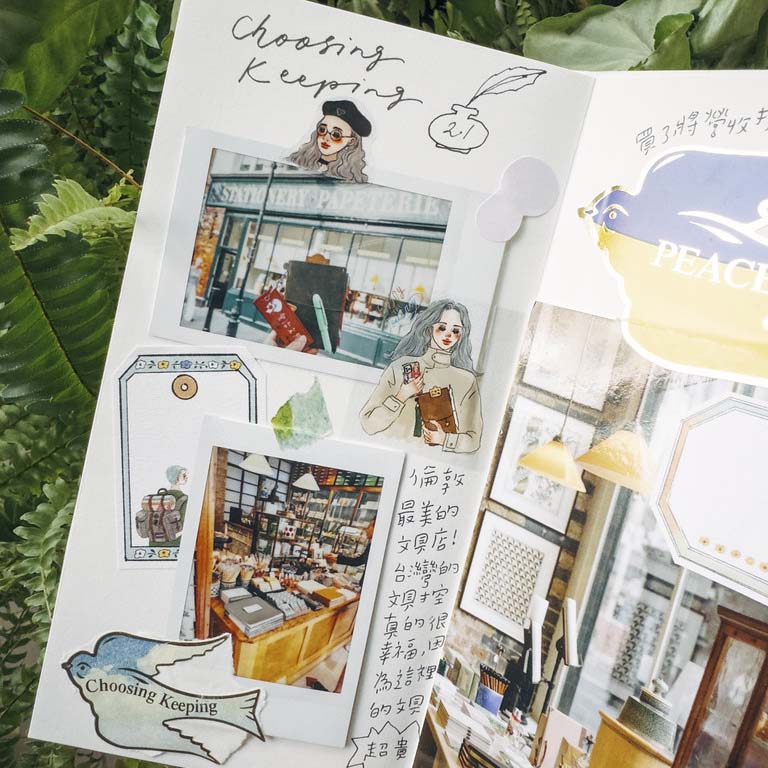 Choosing
Keeping
21
STATIONERY PAPETERIE
倫敦
最美的
文具店!
台灣的
文具控
真的很
幸福,因
為這裡
的文具
超貴
Choosing Keeping
買了將營收
PEACE